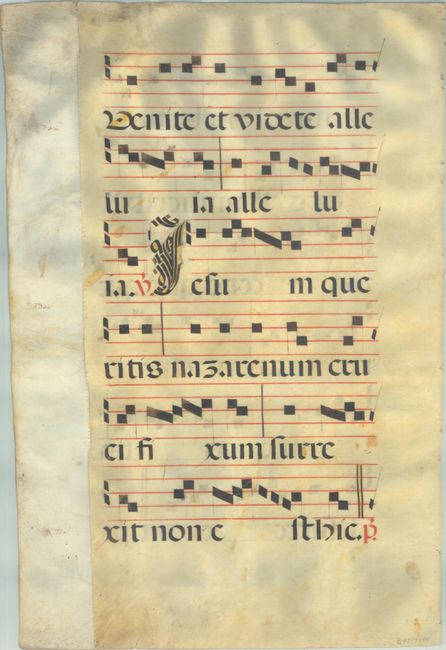 Venite et videte alle
lu ia alle lu
ia. ℣. Jesu m que
ritis nazarenum cru
ci fi xum surre
xit non e st hic. p.